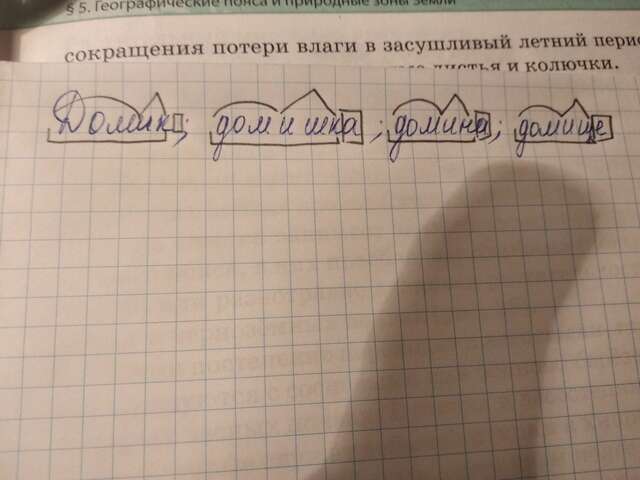 § 5. Географические пояса и природные зоны Земли
сокращения потери влаги в засушливый летний перио
листья и колючки.
Домик; домишка; домина; домище